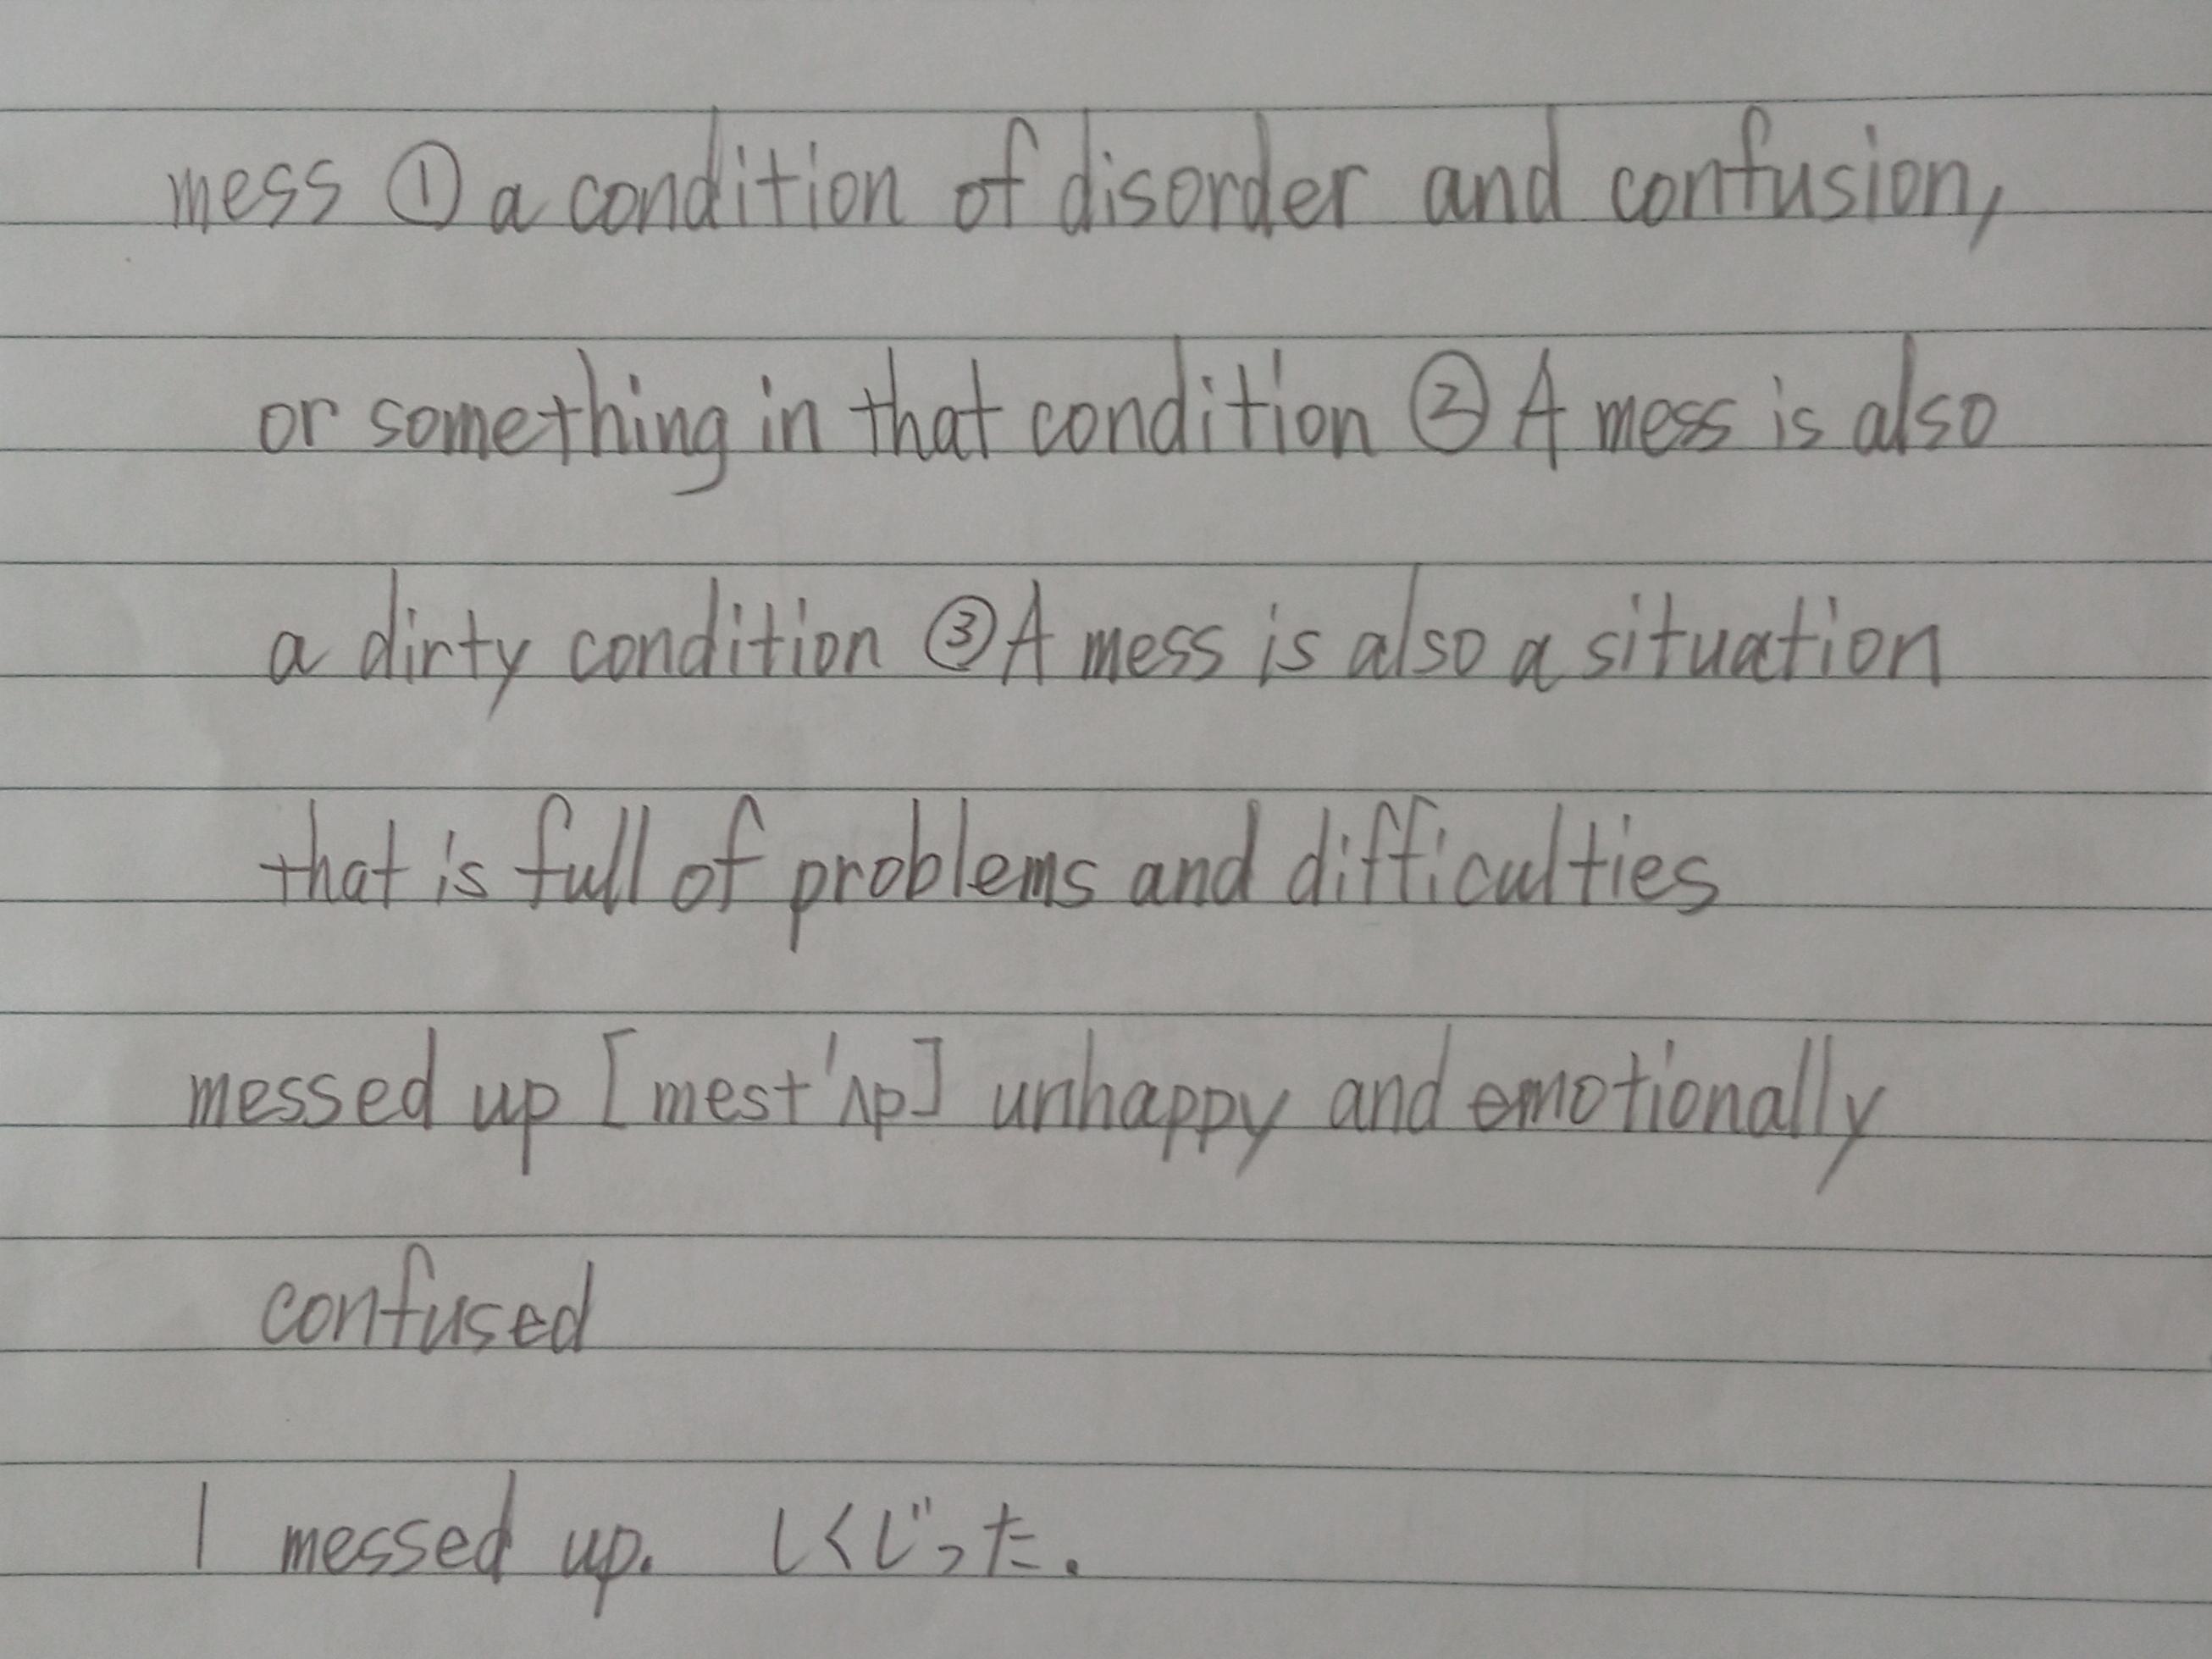 mess ① a condition of disorder and confusion,
or something in that condition ② A mess is also
a dirty condition ③ A mess is also a situation
that is full of problems and difficulties
messed up [mest'ʌp] unhappy and emotionally
confused
I messed up. しくじった.